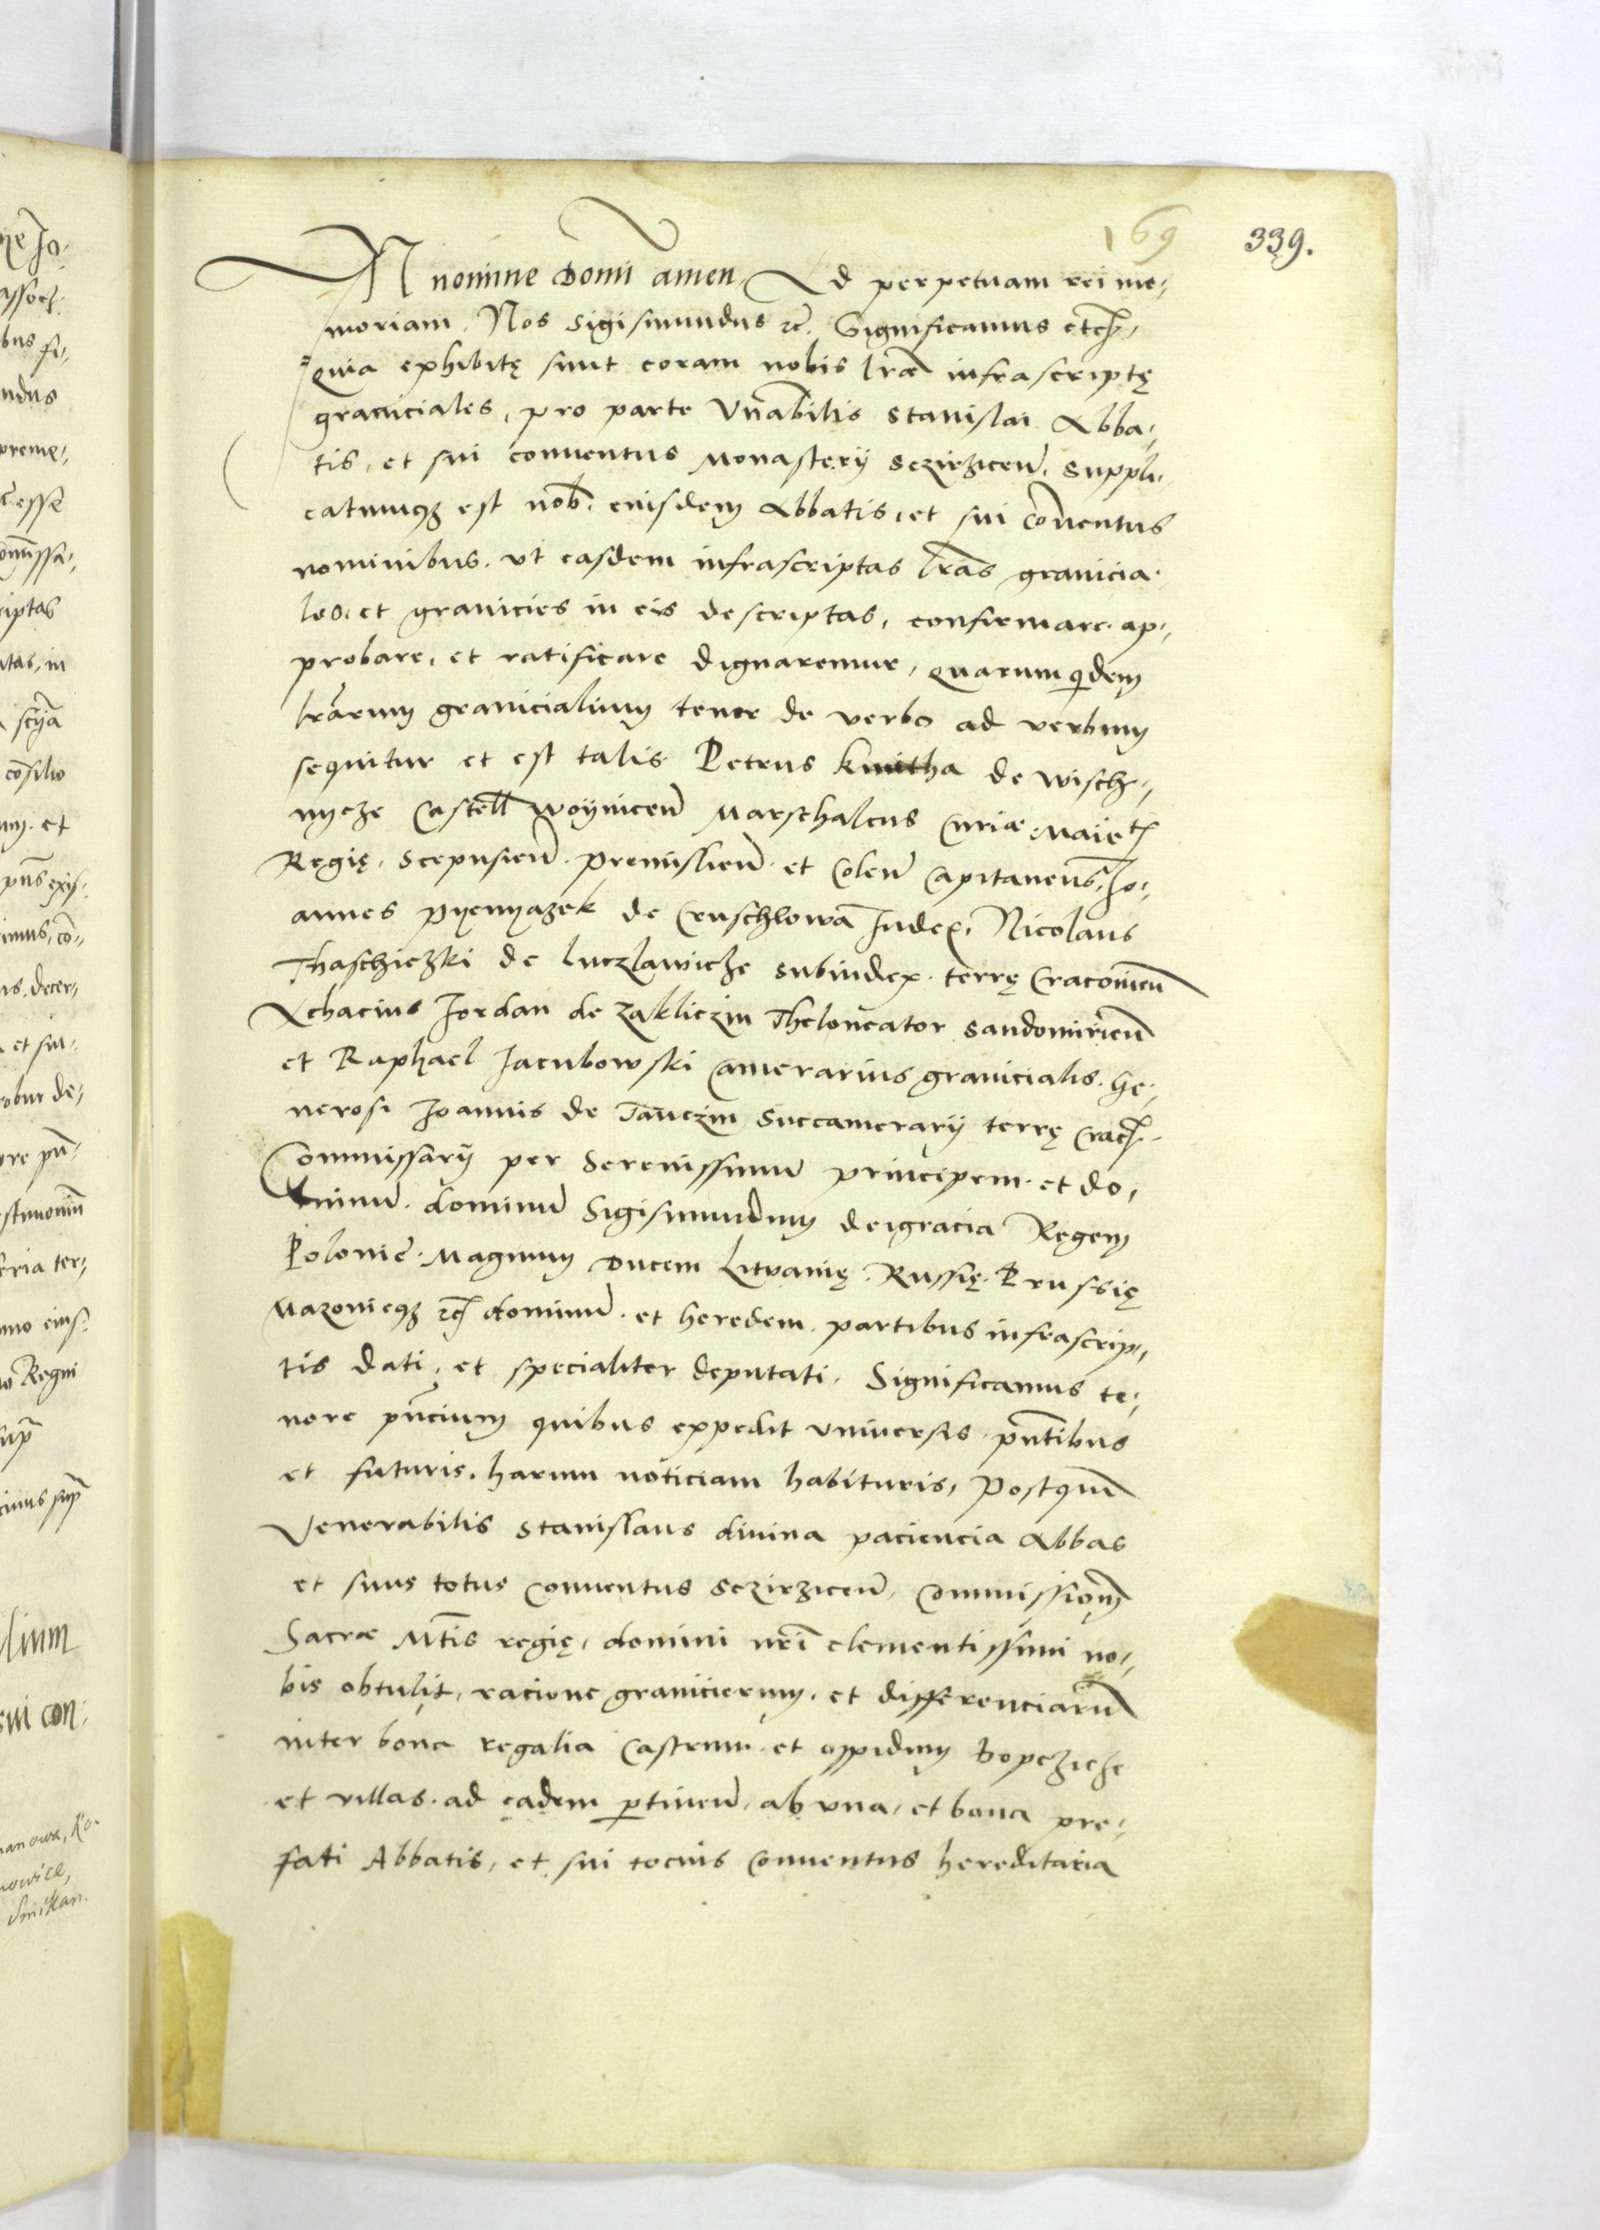 169 339.
IN nomine Domī amen, Ad perpetuam rei me-
moriam. Nos Sigismundus ꝛc̄. Significamus etc̄,
Quia exhibitę sunt coram nobis lrae infrascriptę
graniciales, pro parte Vn̄abilis Stanislai Abba-
tis, et sui conuentus Monasterij Scziržiceñ. suppli-
catumqꝫ est nob̄. eiusdem Abbatis, et sui cōuentus
nominibus. vt easdem infrascriptas lrās granicia-
les. et granicies in eis descriptas, confirmare. ap-
probare, et ratificare dignaremur, quarum q̄dem
lrārum granicialium tenor de verbo ad verbum
sequitur et est talis Petrus Kmitha de Wisch-
nycze Castell Woÿniceñ Marschalcus Curiae Maiet̄
Regię, Scepusieñ. Premislieñ. et Coleñ Capitaneus, Jo-
annes Pyenyazek de Cruschlowa Judex, Nicolaus
Thaschiczki de Luczlawicze Subiudex. terrę Cracouieñ
Achacius Jordan de Zakliczin Theloneator Sandomirieñ
et Raphael Jacubowski Camerarius granicialis. Ge-
nerosi Joannis de Tanczin Succamerarij terrę Crac̄.
Commissarij per Serenissimū principem. et do-
minū. dominū Sigismundum dei gracia Regem
Polonie. Magnum Ducem Lituanię. Russię. Prussię
Mazouieqꝫ ꝛc̄ dominū. et heredem. partibus infrascrip-
tis dati, et specialiter deputati. Significamus te-
nore pn̄cium quibus expedit vniuersis. pn̄tibus
et futuris. harum noticiam habituris, Postq̄m̄
Venerabilis Stanislaus diuina paciencia Abbas
et suus totus Conuentus Scziržiceñ, Commissionē
Sacrae Mt̄is regię, domini nr̄i clementissimi no-
bis obtulit, racione granicierum. et differenciarū
inter bona regalia Castrum. et oppidum Dopczicze
et villas. ad eadem ꝑtineñ. ab vna, et bona pre-
fati Abbatis, et sui tocius Conuentus hereditaria